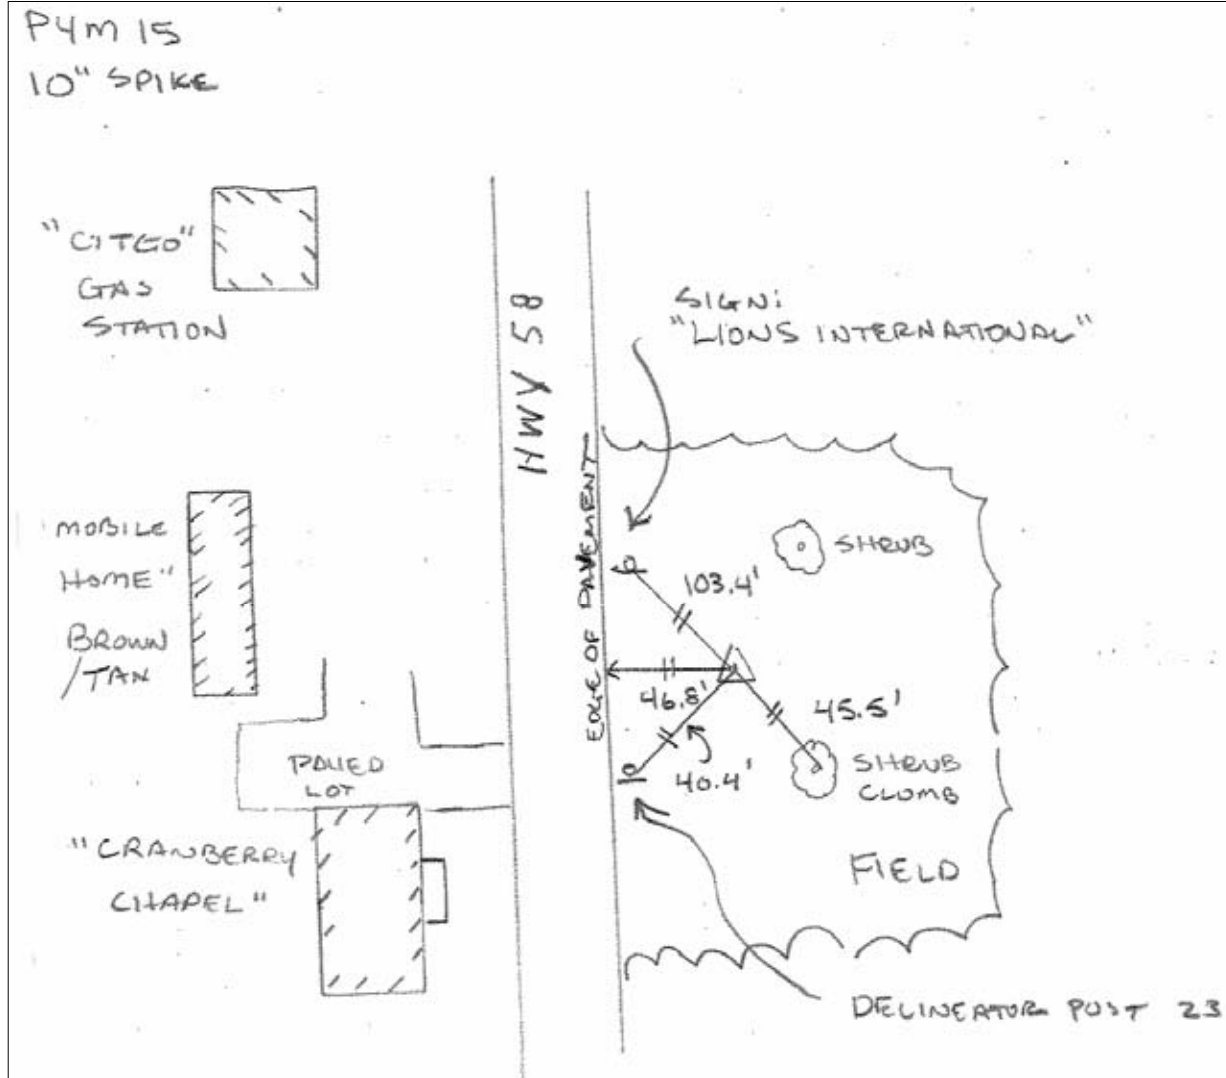 P4M 15
10" SPIKE
"CITGO"
GAS
STATION
HWY 58
SIGN:
"LIONS INTERNATIONAL"
EDGE OF PAVEMENT
MOBILE
HOME"
BROWN
/TAN
SHRUB
103.4'
46.8'
45.5'
40.4'
SHRUB
CLUMB
PAVED
LOT
"CRANBERRY
CHAPEL"
FIELD
DELINEATOR POST 23